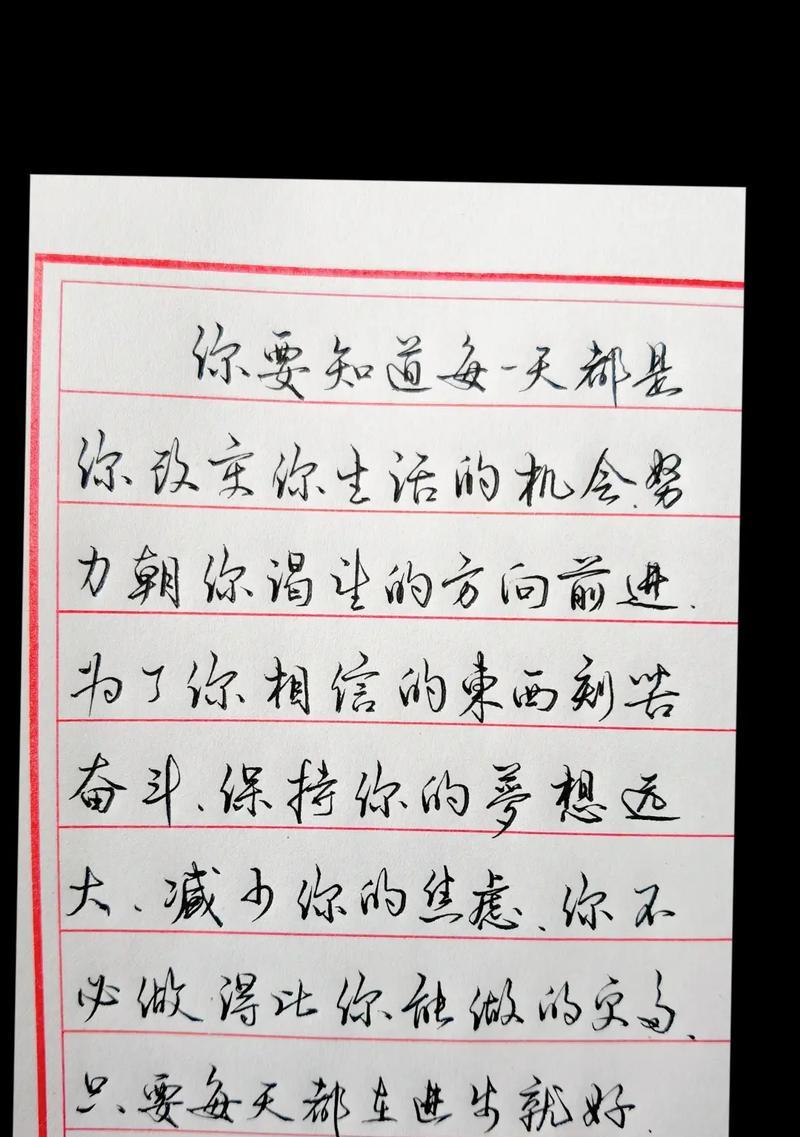 你要知道每一天都是
你改变你生活的机会、努
力朝你渴望的方向前进、
为了你相信的東西刻苦
奋斗、保持你的夢想远
大、减少你的焦虑、你不
必做得比你能做的更多、
只要每天都在进步就好、